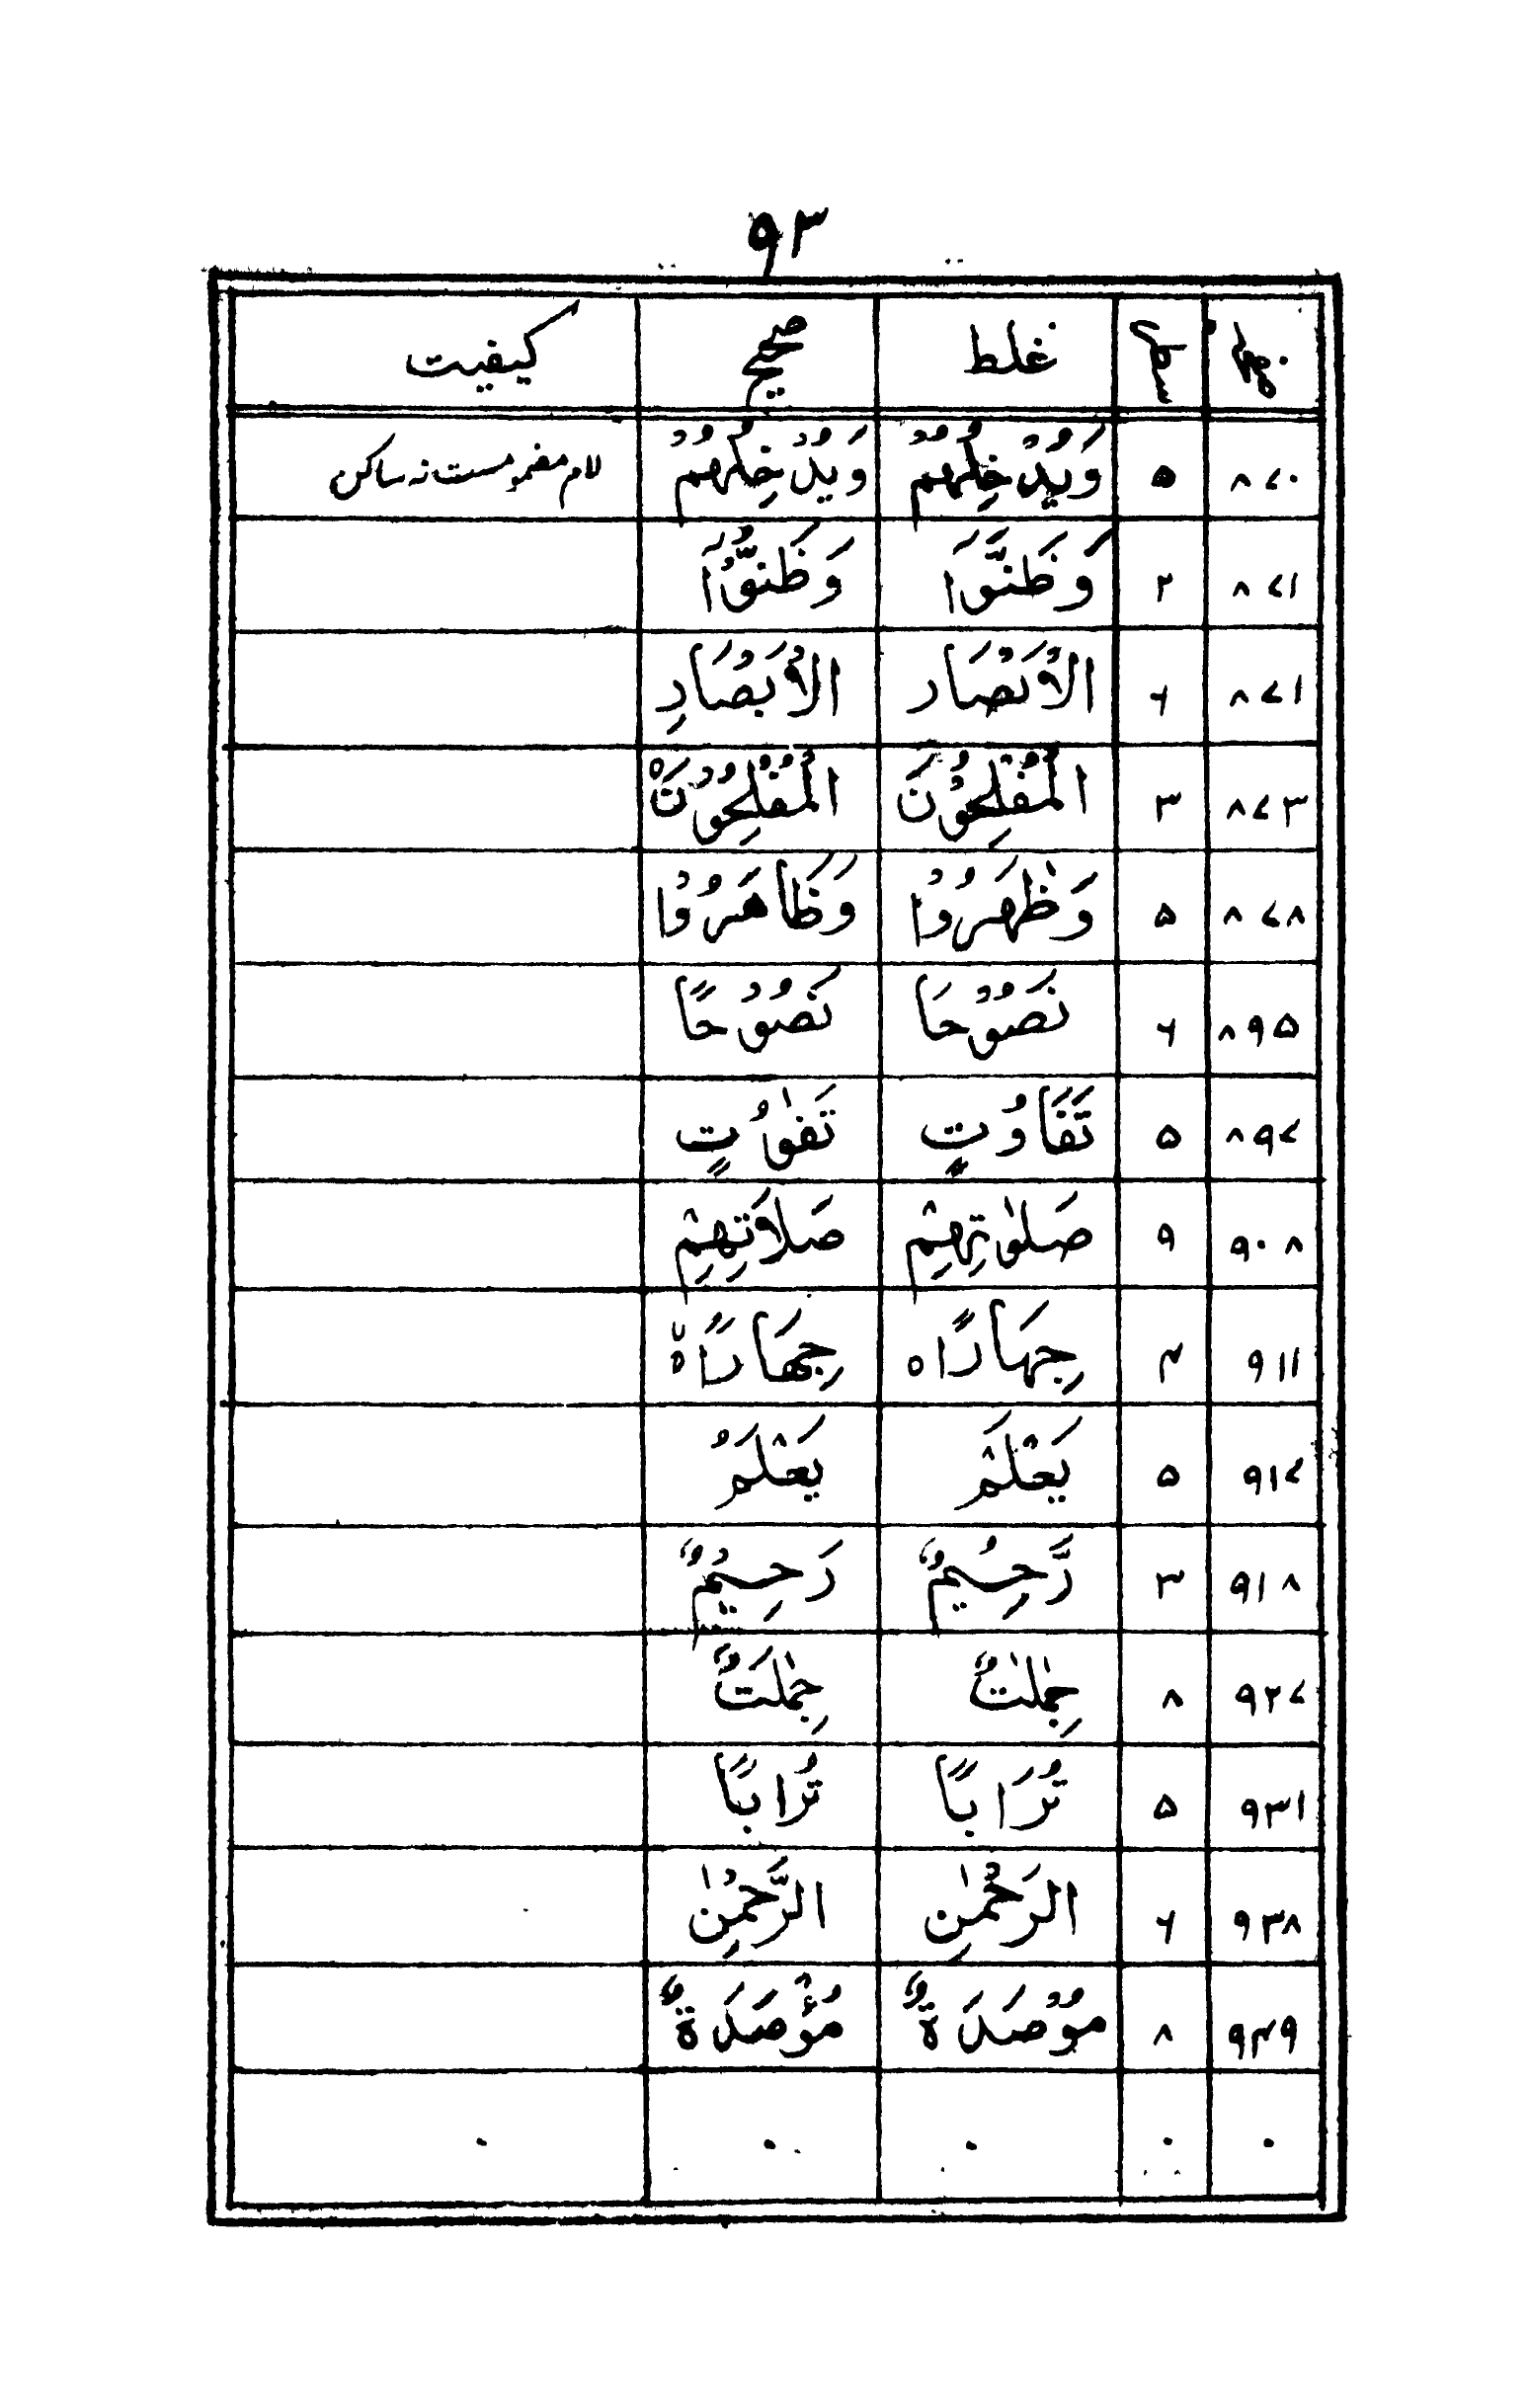 ۹۳
صفحہ سطر غلط صحیح کیفیت
۸۷۰ ۵ وَیُدْخِلُهُمْ وَیُدْخِلُهُمْ لام مضموست نہ ساکن
۸۷۱ ۲ وَظَنَّوَا وَظَنُّوْۤا
۸۷۱ ۶ الْاَنْصَار الْاَبْصَارِ
۸۷۳ ۳ الْمُفْلِحُوْنَ الْمُفْلِحُوْنَ ہ
۸۷۸ ۵ وَظٰهَرُوْا وَظَاهَرُوْا
۸۹۵ ۶ نَصُوْحَا نَصُوْحًا
۸۹۷ ۵ تَفَاوُتٍ تَفٰوُتٍ
۹۰۸ ۹ صَلوٰتِهِمْ صَلَاتِهِمْ
۹۱۱ ۴ جِهَارًا ہ جِهَارًا ہ
۹۱۷ ۵ یَعْلَمْ یَعْلَمُ
۹۱۸ ۳ رَّحِیْمٌ رَحِیْمٌ
۹۲۷ ۸ جِمٰلٰتٌ جِمٰلَتٌ
۹۳۱ ۵ تُرَابًا تُرَابًا
۹۳۸ ۶ الرَحْمٰنِ الرَّحْمٰنِ
۹۴۹ ۸ مُوْصَدَةٌ مُؤْصَدَةٌ
۰ ۰ ۰ ۰ ۰